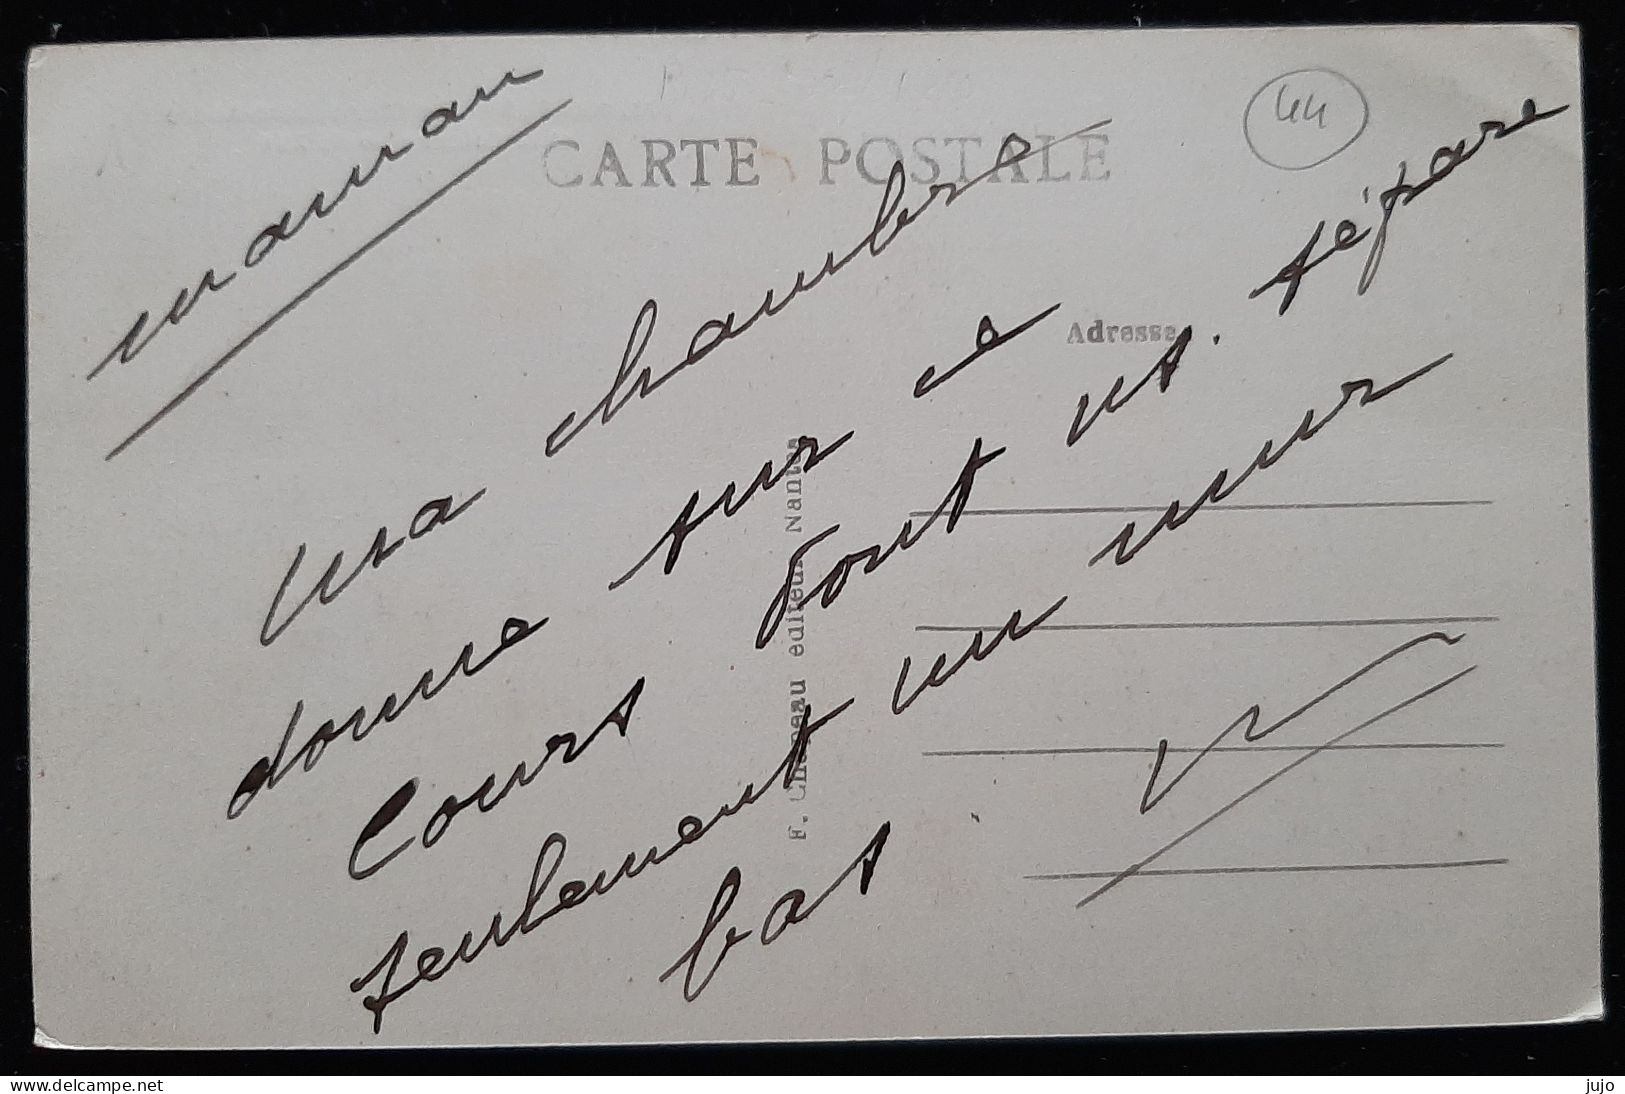 maman
CARTE POSTALE
44
ma chambre
donne sur ce
Cours dont ns. sépare
seulement un mur
bas.
Adresse
F. Chapeau editeur Nantes
www.delcampe.net
jujo